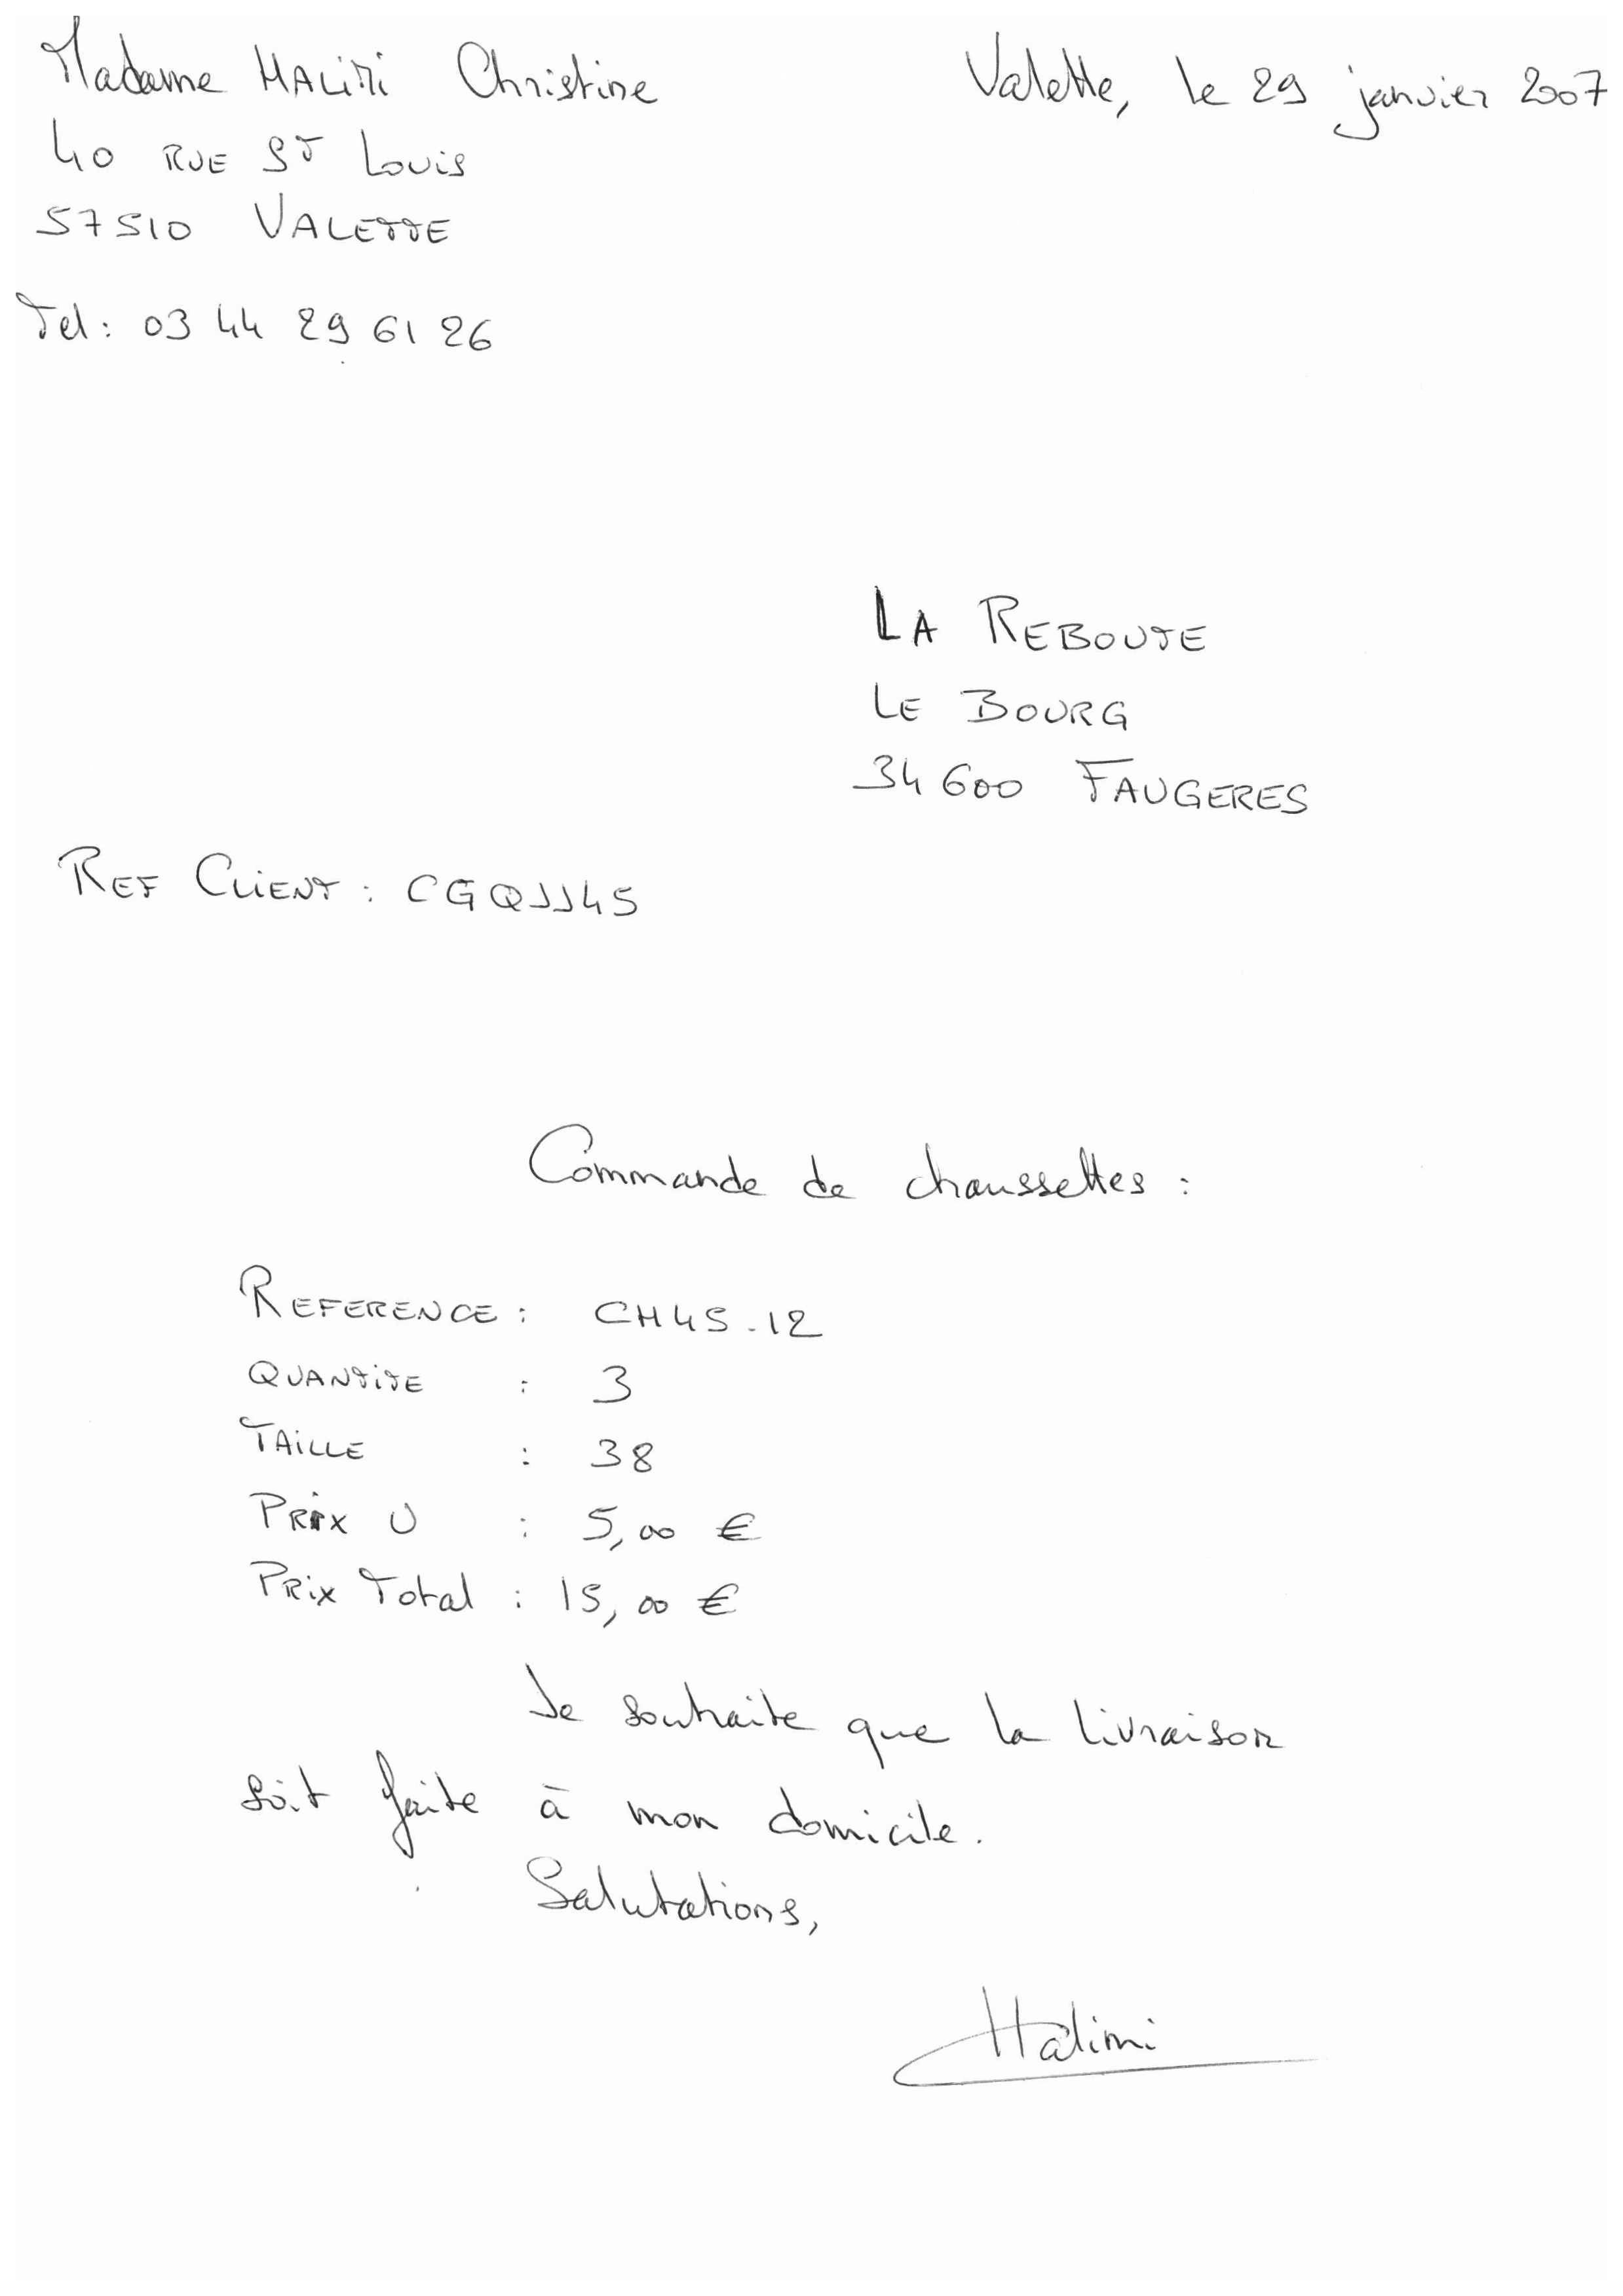 Madame HALIMI Christine
Valette, le 29 janvier 2007
40 RUE ST Louis
57510 VALETTE
Tel: 03 44 29 61 26
LA REBOUTE
LE BOURG
34600 FAUGERES
REF CLIENT : CGQJJ45
Commande de chaussettes :
REFERENCE : CH45-12
QUANTITE : 3
TAILLE : 38
PRIX U : 5,00 €
PRIX Total : 15,00 €
Je souhaite que la livraison
soit faite à mon domicile.
Salutations,
Halimi